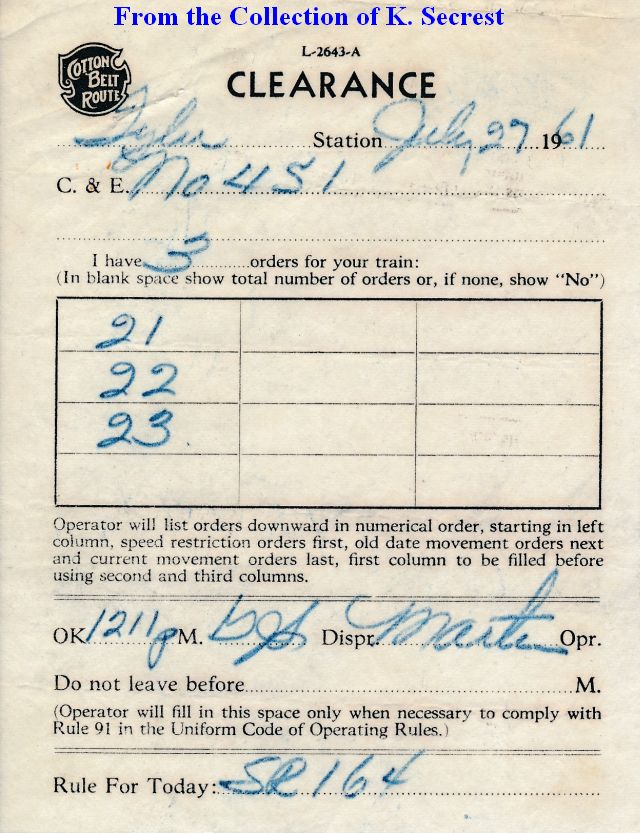 From the Collection of K. Secrest
L-2643-A
COTTON BELT ROUTE
CLEARANCE
Tyler Station July 27 1961
C. & E. No 451
I have 3 orders for your train:
(In blank space show total number of orders or, if none, show "No")
21
22
23.
Operator will list orders downward in numerical order, starting in left
column, speed restriction orders first, old date movement orders next
and current movement orders last, first column to be filled before
using second and third columns.
OK 1211 p M. Dispr. Martin Opr.
Do not leave before M.
(Operator will fill in this space only when necessary to comply with
Rule 91 in the Uniform Code of Operating Rules.)
Rule For Today: SR 164